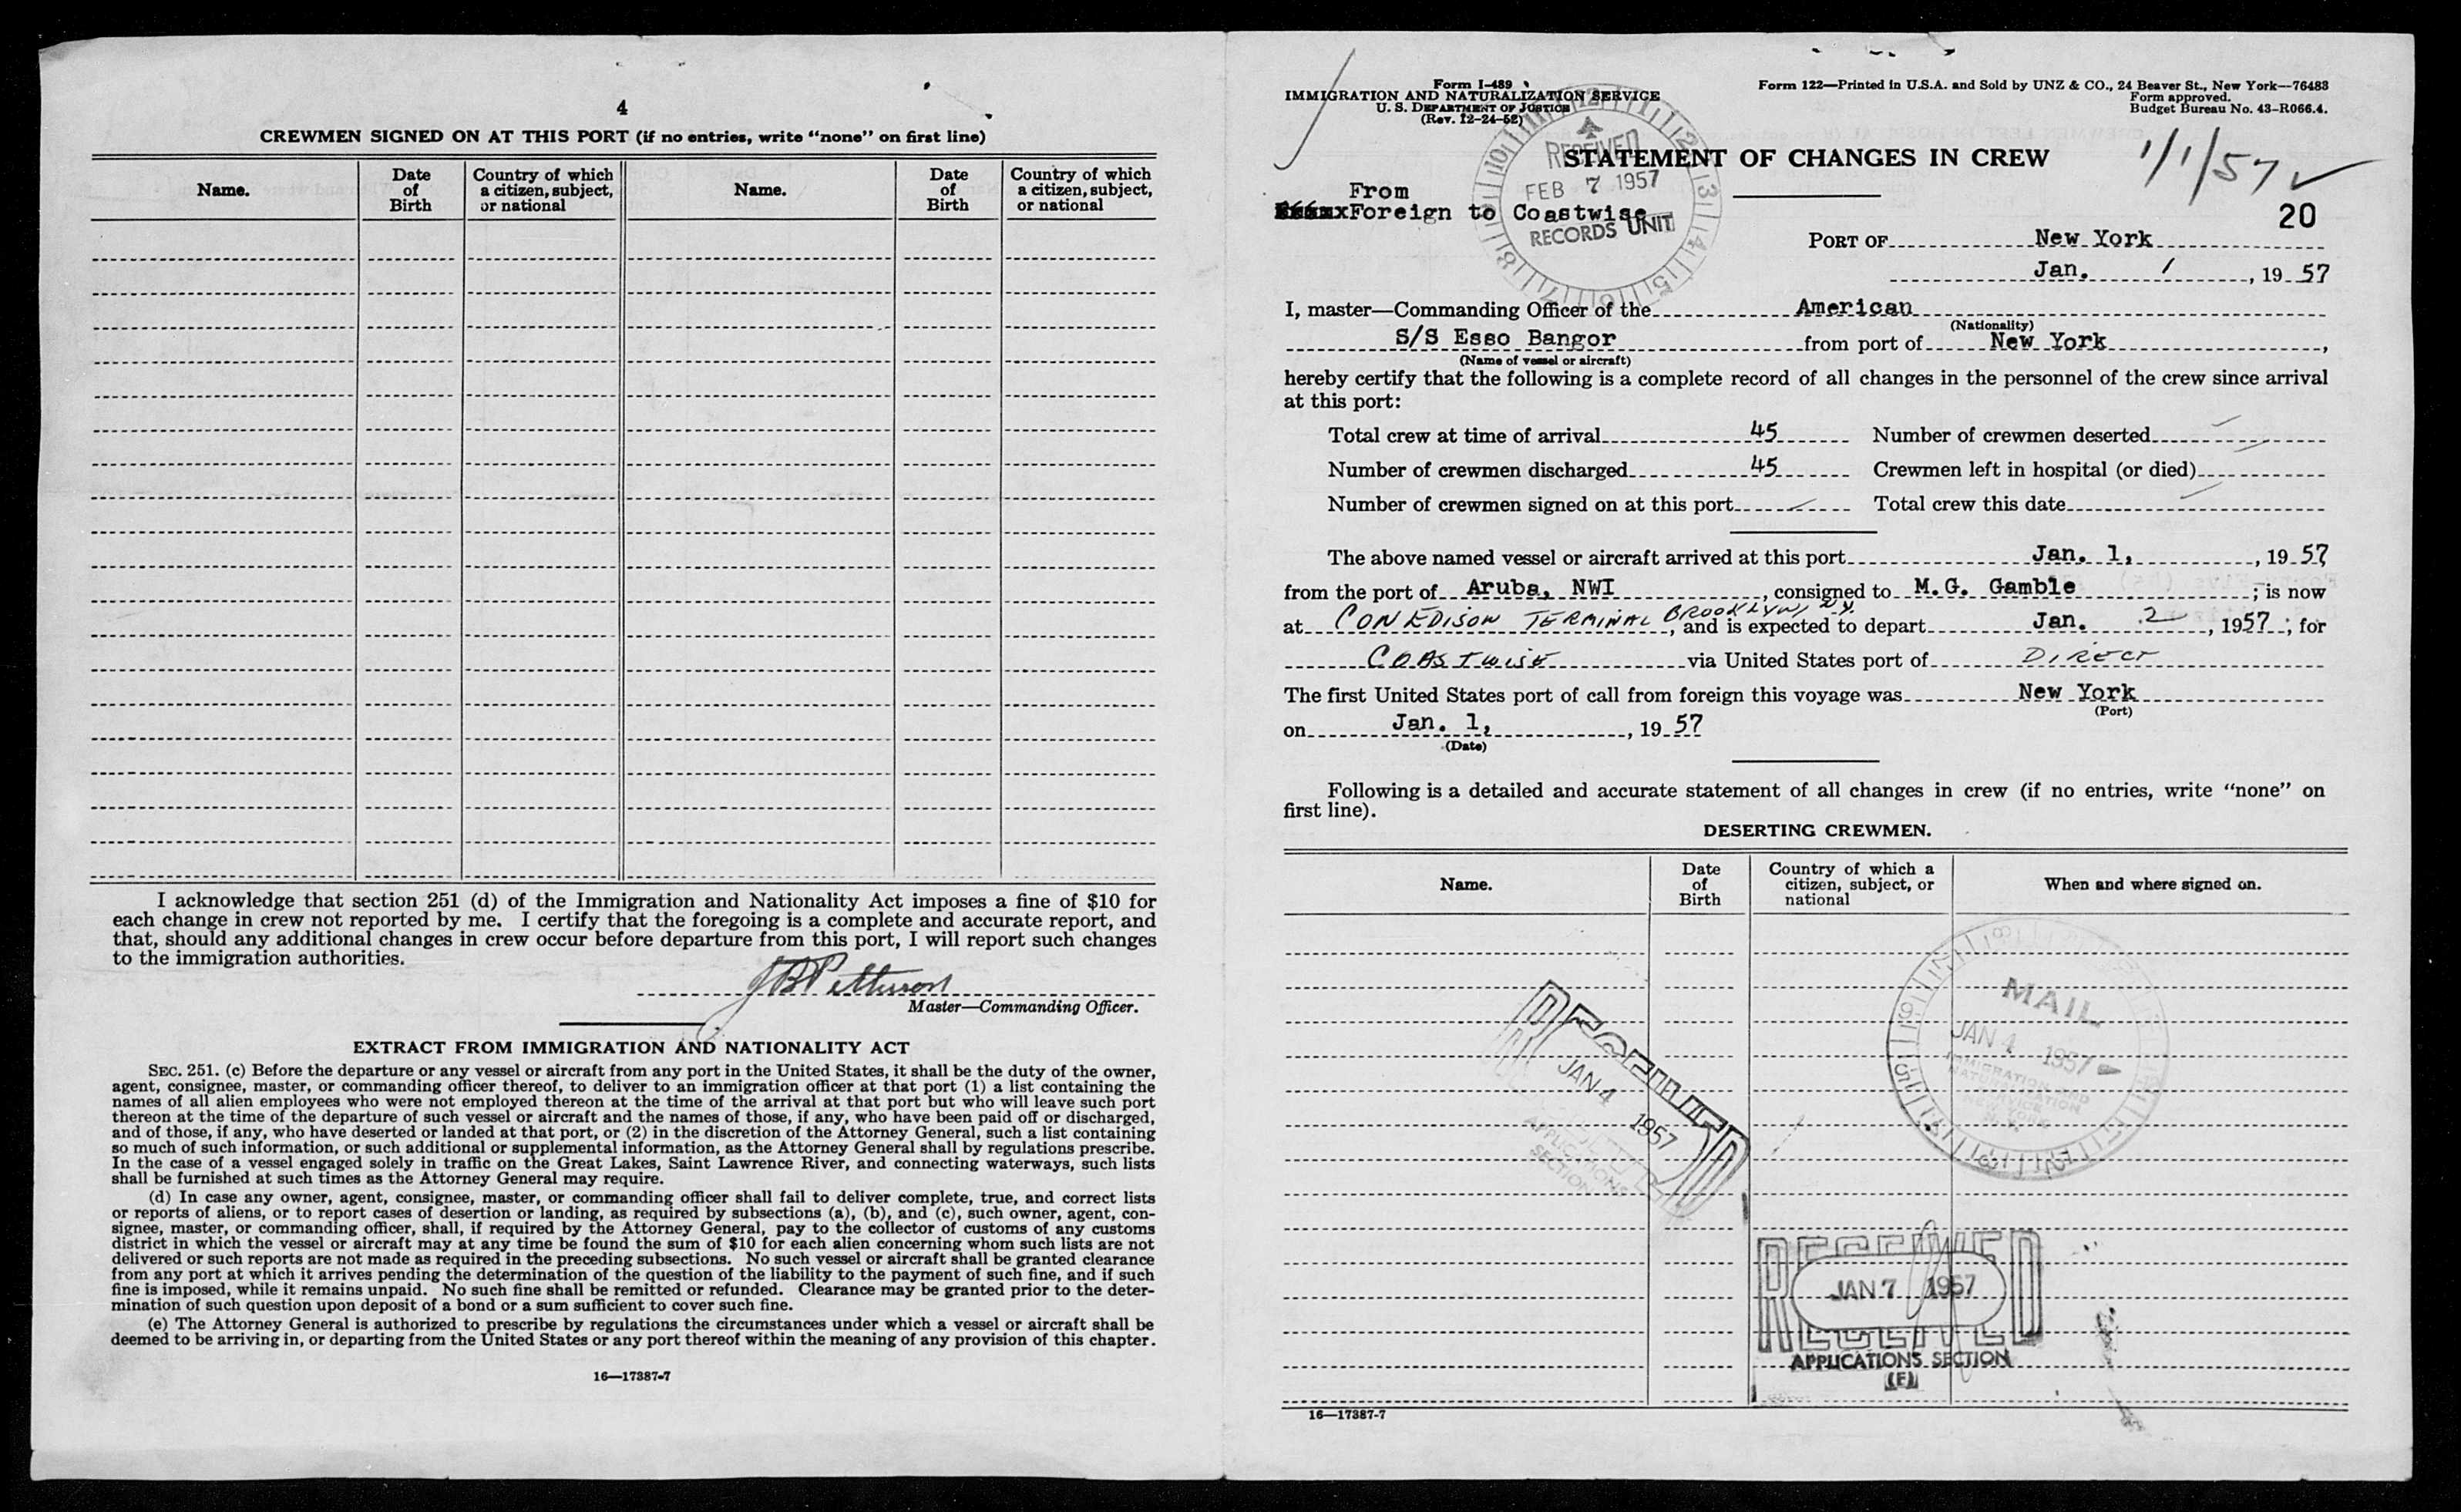 4
CREWMEN SIGNED ON AT THIS PORT (if no entries, write "none" on first line)
Name. Date of Birth Country of which a citizen, subject, or national Name. Date of Birth Country of which a citizen, subject, or national
I acknowledge that section 251 (d) of the Immigration and Nationality Act imposes a fine of $10 for
each change in crew not reported by me. I certify that the foregoing is a complete and accurate report, and
that, should any additional changes in crew occur before departure from this port, I will report such changes
to the immigration authorities.
Master—Commanding Officer.
EXTRACT FROM IMMIGRATION AND NATIONALITY ACT
SEC. 251. (c) Before the departure or any vessel or aircraft from any port in the United States, it shall be the duty of the owner,
agent, consignee, master, or commanding officer thereof, to deliver to an immigration officer at that port (1) a list containing the
names of all alien employees who were not employed thereon at the time of the arrival at that port but who will leave such port
thereon at the time of the departure of such vessel or aircraft and the names of those, if any, who have been paid off or discharged,
and of those, if any, who have deserted or landed at that port, or (2) in the discretion of the Attorney General, such a list containing
so much of such information, or such additional or supplemental information, as the Attorney General shall by regulations prescribe.
In the case of a vessel engaged solely in traffic on the Great Lakes, Saint Lawrence River, and connecting waterways, such lists
shall be furnished at such times as the Attorney General may require.
(d) In case any owner, agent, consignee, master, or commanding officer shall fail to deliver complete, true, and correct lists
or reports of aliens, or to report cases of desertion or landing, as required by subsections (a), (b), and (c), such owner, agent, con-
signee, master, or commanding officer, shall, if required by the Attorney General, pay to the collector of customs of any customs
district in which the vessel or aircraft may at any time be found the sum of $10 for each alien concerning whom such lists are not
delivered or such reports are not made as required in the preceding subsections. No such vessel or aircraft shall be granted clearance
from any port at which it arrives pending the determination of the question of the liability to the payment of such fine, and if such
fine is imposed, while it remains unpaid. No such fine shall be remitted or refunded. Clearance may be granted prior to the deter-
mination of such question upon deposit of a bond or a sum sufficient to cover such fine.
(e) The Attorney General is authorized to prescribe by regulations the circumstances under which a vessel or aircraft shall be
deemed to be arriving in, or departing from the United States or any port thereof within the meaning of any provision of this chapter.
16—17387-7
Form I-489
IMMIGRATION AND NATURALIZATION SERVICE
U. S. DEPARTMENT OF JUSTICE
(Rev. 12-24-52)
Form 122—Printed in U.S.A. and Sold by UNZ & CO., 24 Beaver St., New York—76483
Form approved.
Budget Bureau No. 43-R066.4.
RECEIVED
FEB 7 1957
RECORDS UNIT
STATEMENT OF CHANGES IN CREW
1/1/57
From
Foreign to Coastwise
20
PORT OF New York
Jan. 1, 1957
I, master—Commanding Officer of the American
(Nationality)
S/S Esso Bangor from port of New York,
(Name of vessel or aircraft)
hereby certify that the following is a complete record of all changes in the personnel of the crew since arrival
at this port:
Total crew at time of arrival 45 Number of crewmen deserted
Number of crewmen discharged 45 Crewmen left in hospital (or died)
Number of crewmen signed on at this port Total crew this date
The above named vessel or aircraft arrived at this port Jan. 1, , 19 57
from the port of Aruba, NWI, consigned to M.G. Gamble; is now
at CON EDISON TERMINAL BROOKLYN, N.Y., and is expected to depart Jan. 2, 1957; for
COASTWISE via United States port of DIRECT
The first United States port of call from foreign this voyage was New York
(Port)
on Jan. 1, , 19 57
(Date)
Following is a detailed and accurate statement of all changes in crew (if no entries, write "none" on
first line).
DESERTING CREWMEN.
Name. Date of Birth Country of which a citizen, subject, or national When and where signed on.
MAIL
JAN 4 1957
IMMIGRATION AND
NATURALIZATION
SERVICE
NEW YORK
N.Y.
RECEIVED
JAN 4 1957
APPLICATIONS
SECTION
RECEIVED
JAN 7 1957
RECEIVED
APPLICATIONS SECTION
(F)
16—17387-7